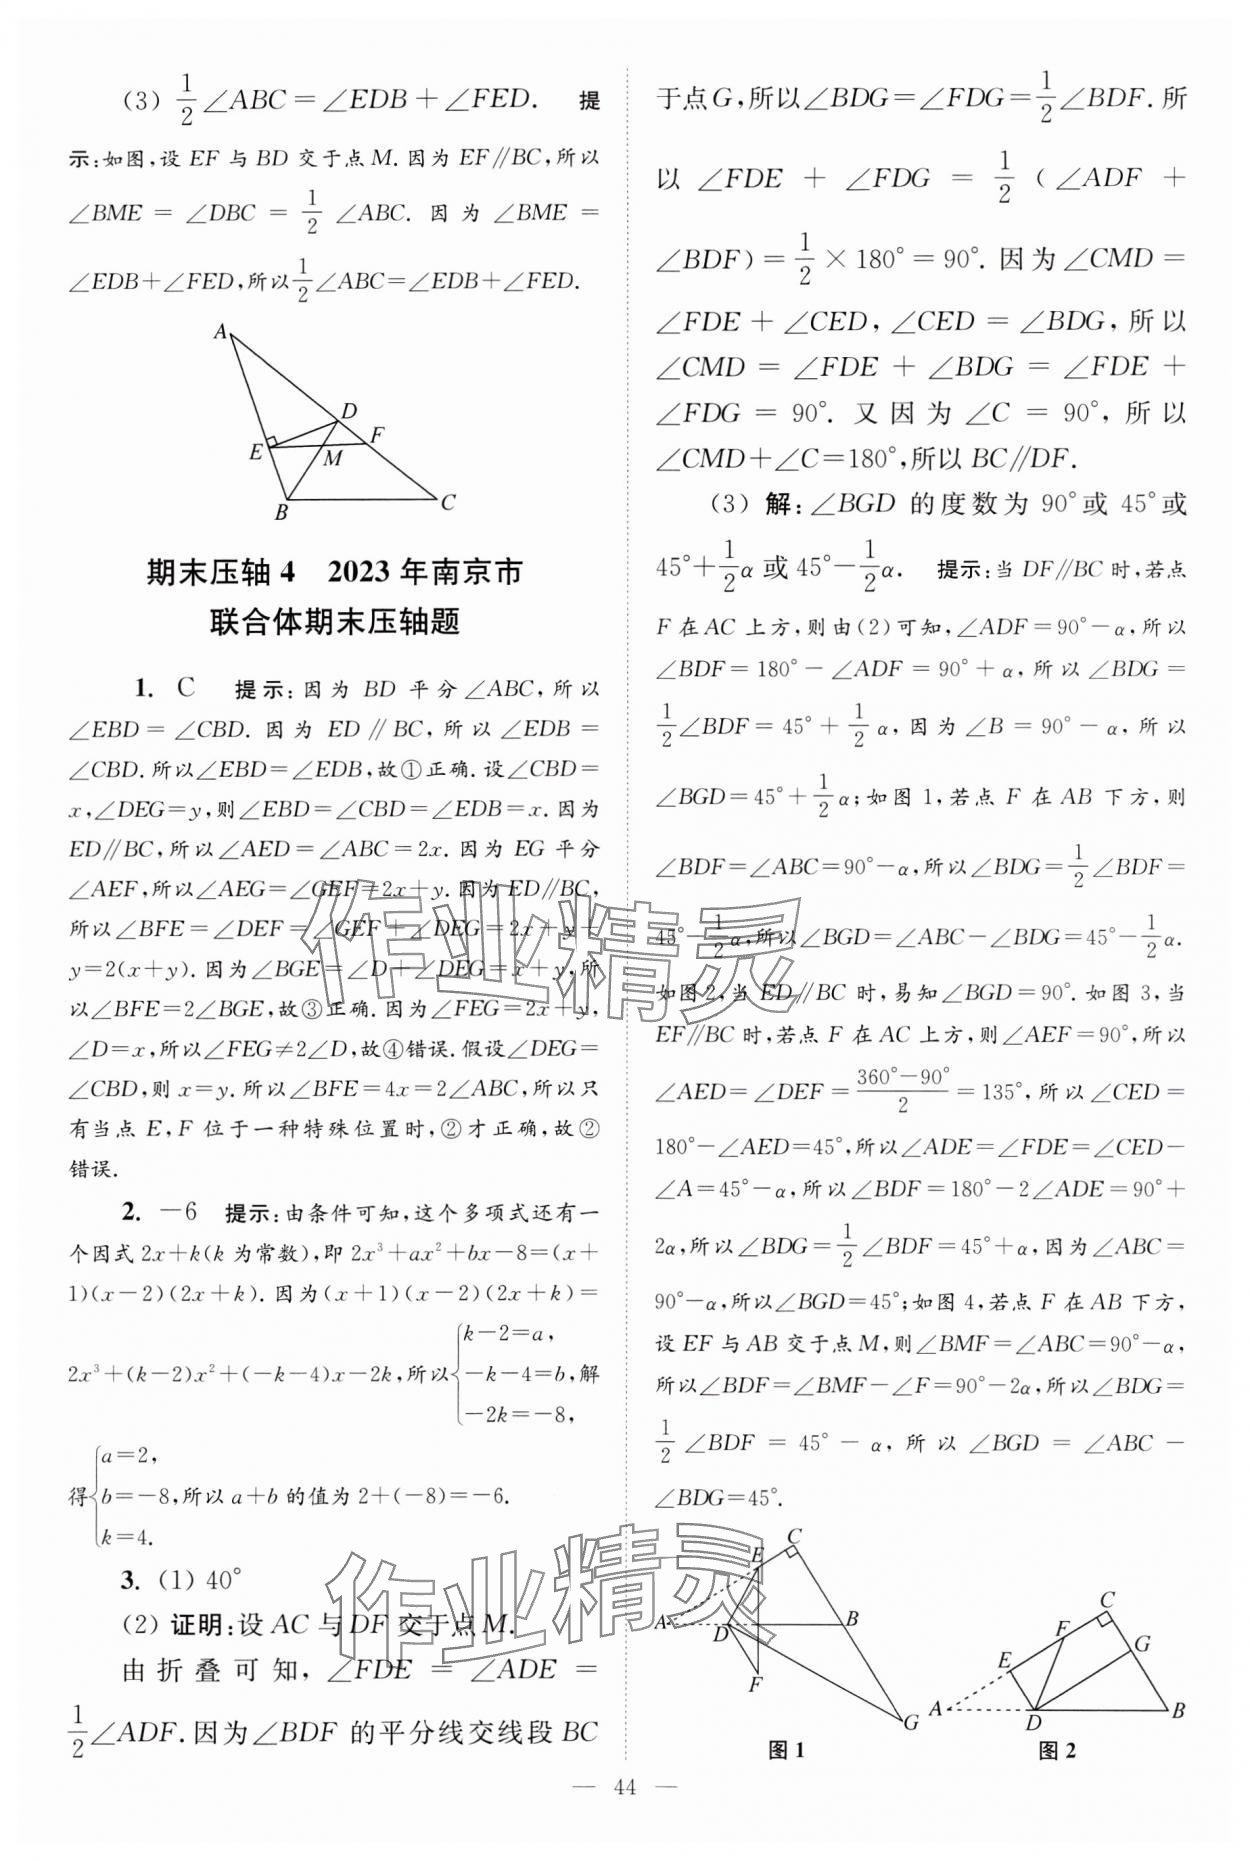 (3) 1/2∠ABC=∠EDB+∠FED. 提
示:如图,设 EF 与 BD 交于点 M.因为 EF∥BC,所以
∠BME = ∠DBC = 1/2 ∠ABC. 因为 ∠BME =
∠EDB+∠FED,所以1/2∠ABC=∠EDB+∠FED.
A
D
F
E
M
B
C
期末压轴 4 2023 年南京市
联合体期末压轴题
1. C 提示:因为 BD 平分∠ABC,所以
∠EBD= ∠CBD. 因为 ED∥BC,所以∠EDB=
∠CBD.所以∠EBD=∠EDB,故①正确.设∠CBD=
x,∠DEG=y,则∠EBD=∠CBD=∠EDB=x.因为
ED∥BC,所以∠AED=∠ABC=2x.因为 EG 平分
∠AEF,所以∠AEG=∠GEF=2x+y.因为ED∥BC,
所以∠BFE=∠DEF=∠GEF+∠DEG=2x+y+
y=2(x+y).因为∠BGE=∠D+∠DEG=x+y,所
以∠BFE=2∠BGE,故③正确.因为∠FEG=2x+y,
∠D=x,所以∠FEG≠2∠D,故④错误.假设∠DEG=
∠CBD,则 x=y.所以∠BFE=4x=2∠ABC,所以只
有当点 E,F 位于一种特殊位置时,②才正确,故②
错误.
2. -6 提示:由条件可知,这个多项式还有一
个因式 2x+k(k 为常数),即 2x³+ax²+bx-8=(x+
1)(x-2)(2x+k).因为(x+1)(x-2)(2x+k)=
2x³+(k-2)x²+(-k-4)x-2k,所以{k-2=a, -k-4=b, -2k=-8,解
得{a=2, b=-8, k=4.所以 a+b 的值为 2+(-8)=-6.
3. (1) 40°
(2) 证明:设 AC 与 DF 交于点 M.
由折叠可知,∠FDE = ∠ADE =
1/2∠ADF.因为∠BDF 的平分线交线段 BC
于点G,所以∠BDG=∠FDG=1/2∠BDF.所
以 ∠FDE + ∠FDG = 1/2 (∠ADF +
∠BDF)=1/2×180°=90°.因为∠CMD=
∠FDE+∠CED,∠CED=∠BDG,所以
∠CMD = ∠FDE + ∠BDG = ∠FDE +
∠FDG = 90°. 又因为∠C = 90°, 所以
∠CMD+∠C=180°,所以 BC∥DF.
(3) 解:∠BGD 的度数为 90°或 45°或
45°+1/2α 或 45°-1/2α. 提示:当 DF∥BC 时,若点
F 在AC 上方,则由(2)可知,∠ADF=90°-α,所以
∠BDF=180°-∠ADF=90°+α,所以∠BDG=
1/2∠BDF=45°+1/2α,因为∠B=90°-α,所以
∠BGD=45°+1/2α;如图 1,若点 F 在 AB 下方,则
∠BDF=∠ABC=90°-α,所以∠BDG=1/2∠BDF=
45°-1/2α,所以∠BGD=∠ABC-∠BDG=45°-1/2α.
如图2,当 ED∥BC 时,易知∠BGD=90°.如图 3,当
EF∥BC 时,若点 F 在 AC 上方,则∠AEF=90°,所以
∠AED=∠DEF=(360°-90°)/2=135°,所以∠CED=
180°-∠AED=45°,所以∠ADE=∠FDE=∠CED-
∠A=45°-α,所以∠BDF=180°-2∠ADE=90°+
2α,所以∠BDG=1/2∠BDF=45°+α,因为∠ABC=
90°-α,所以∠BGD=45°;如图 4,若点 F 在 AB 下方,
设 EF 与 AB 交于点 M,则∠BMF=∠ABC=90°-α,
所以∠BDF=∠BMF-∠F=90°-2α,所以∠BDG=
1/2∠BDF = 45° - α, 所以∠BGD = ∠ABC -
∠BDG=45°.
C
E
A
D
B
F
G
图 1
C
F
G
E
A
D
B
图 2
— 44 —
作业精灵
作业精灵